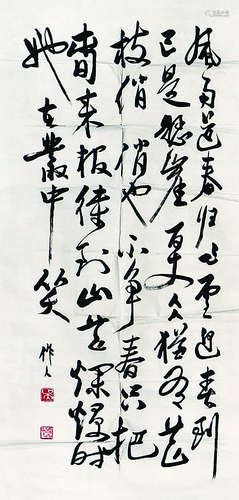 風雨送春归飞雪迎春到
已是懸崖百丈冰猶有花
枝俏俏也不争春只把
春来报待到山花爛熳时
她在叢中笑
作人